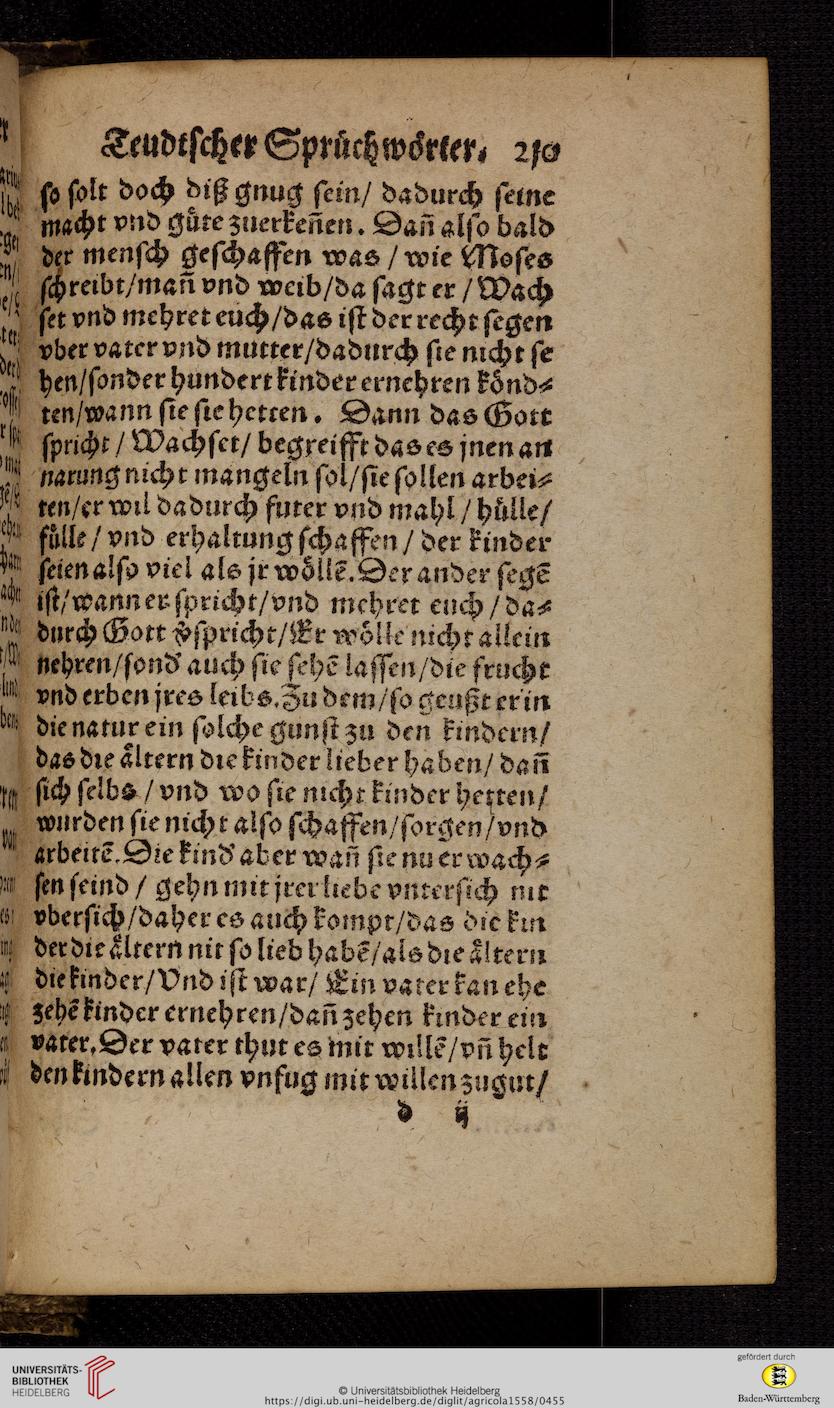 Teudtſcher Spruͤchwoͤrter. 210
ſo ſolt doch diß gnug ſein/ dadurch ſeine
macht vnd guͤte zuerkeñen. Dañ alſo bald
der menſch geſchaffen was / wie Moſes
ſchreibt/mañ vnd weib/da ſagt er / Wach
ſet vnd mehret euch/das iſt der recht ſegen
vber vater vnd mutter/dadurch ſie nicht ſe
hen/ſonder hundert kinder ernehren koͤnd⸗
ten/wann ſie ſie hetten. Dann das Gott
ſpricht / Wachſet/ begreifft das es jnen an
narung nicht mangeln ſol/ſie ſollen arbei⸗
ten/er wil dadurch futer vnd mahl / huͤlle/
fuͤlle / vnd erhaltung ſchaffen / der kinder
ſeien alſo viel als jr woͤllẽ. Der ander ſegẽ
iſt/wann er ſpricht/vnd mehret euch / da⸗
durch Gott v̓ſpricht/Er woͤlle nicht allein
nehren/ſond̓ auch ſie ſehẽ laſſen/die frucht
vnd erben jres leibs. Zu dem/ſo geußt er in
die natur ein ſolche gunſt zu den kindern/
das die aͤltern die kinder lieber haben/ dañ
ſich ſelbs / vnd wo ſie nicht kinder hetten/
wurden ſie nicht alſo ſchaffen/ſorgen/vnd
arbeitẽ. Die kind̓ aber wañ ſie nu erwach⸗
ſen ſeind / gehn mit jrer liebe vnterſich nit
vberſich/daher es auch kompt/das die kin
der die aͤltern nit ſo lieb habẽ/als die aͤltern
die kinder/Vnd iſt war/ Ein vater kan ehe
zehẽ kinder ernehren/dañ zehen kinder ein
vater. Der vater thut es mit willẽ/vñ helt
den kindern allen vnfug mit willen zugut/
d ij
UNIVERSITÄTS-
BIBLIOTHEK
HEIDELBERG
© Universitätsbibliothek Heidelberg
https://digi.ub.uni-heidelberg.de/diglit/agricola1558/0455
gefördert durch
Baden-Württemberg